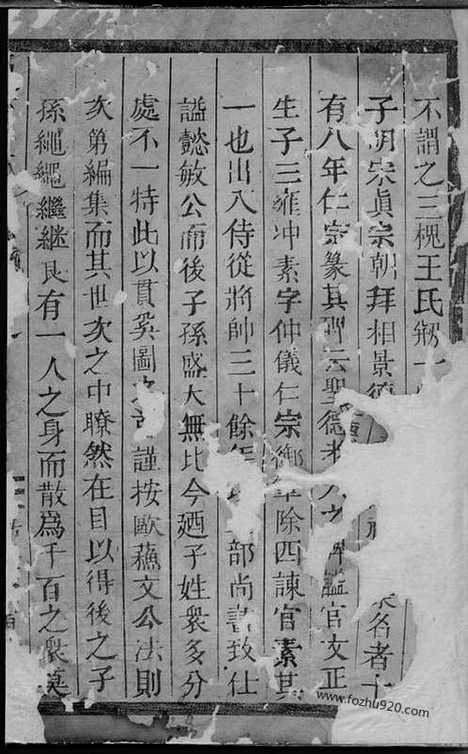 不謂之三槐王氏
子明宋眞宗朝拜相景德 桒名者十
有八年仁宗篆其碑云聖德老人之碑謚官文正
生子三雍冲素字仲儀仁宗御筆除四諫官素其
一也出入侍從將帥三十餘年 部尚書致仕
謚懿敏公而後子孫盛大無比今廼子姓衆多分
處不一特此以貫奚圖之 謹按歐蘓文公法則
次第編集而其世次之中瞭然在目以得後之子
孫繩繩繼継良有一人之身而散為千百之衆莫
www.fozhu920.com